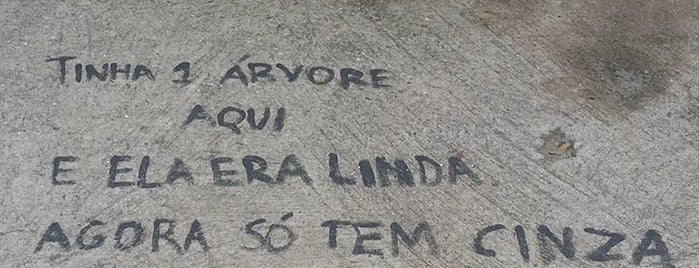 TINHA 1 ÁRVORE
AQUI
E ELA ERA LINDA
AGORA SÓ TEM CINZA